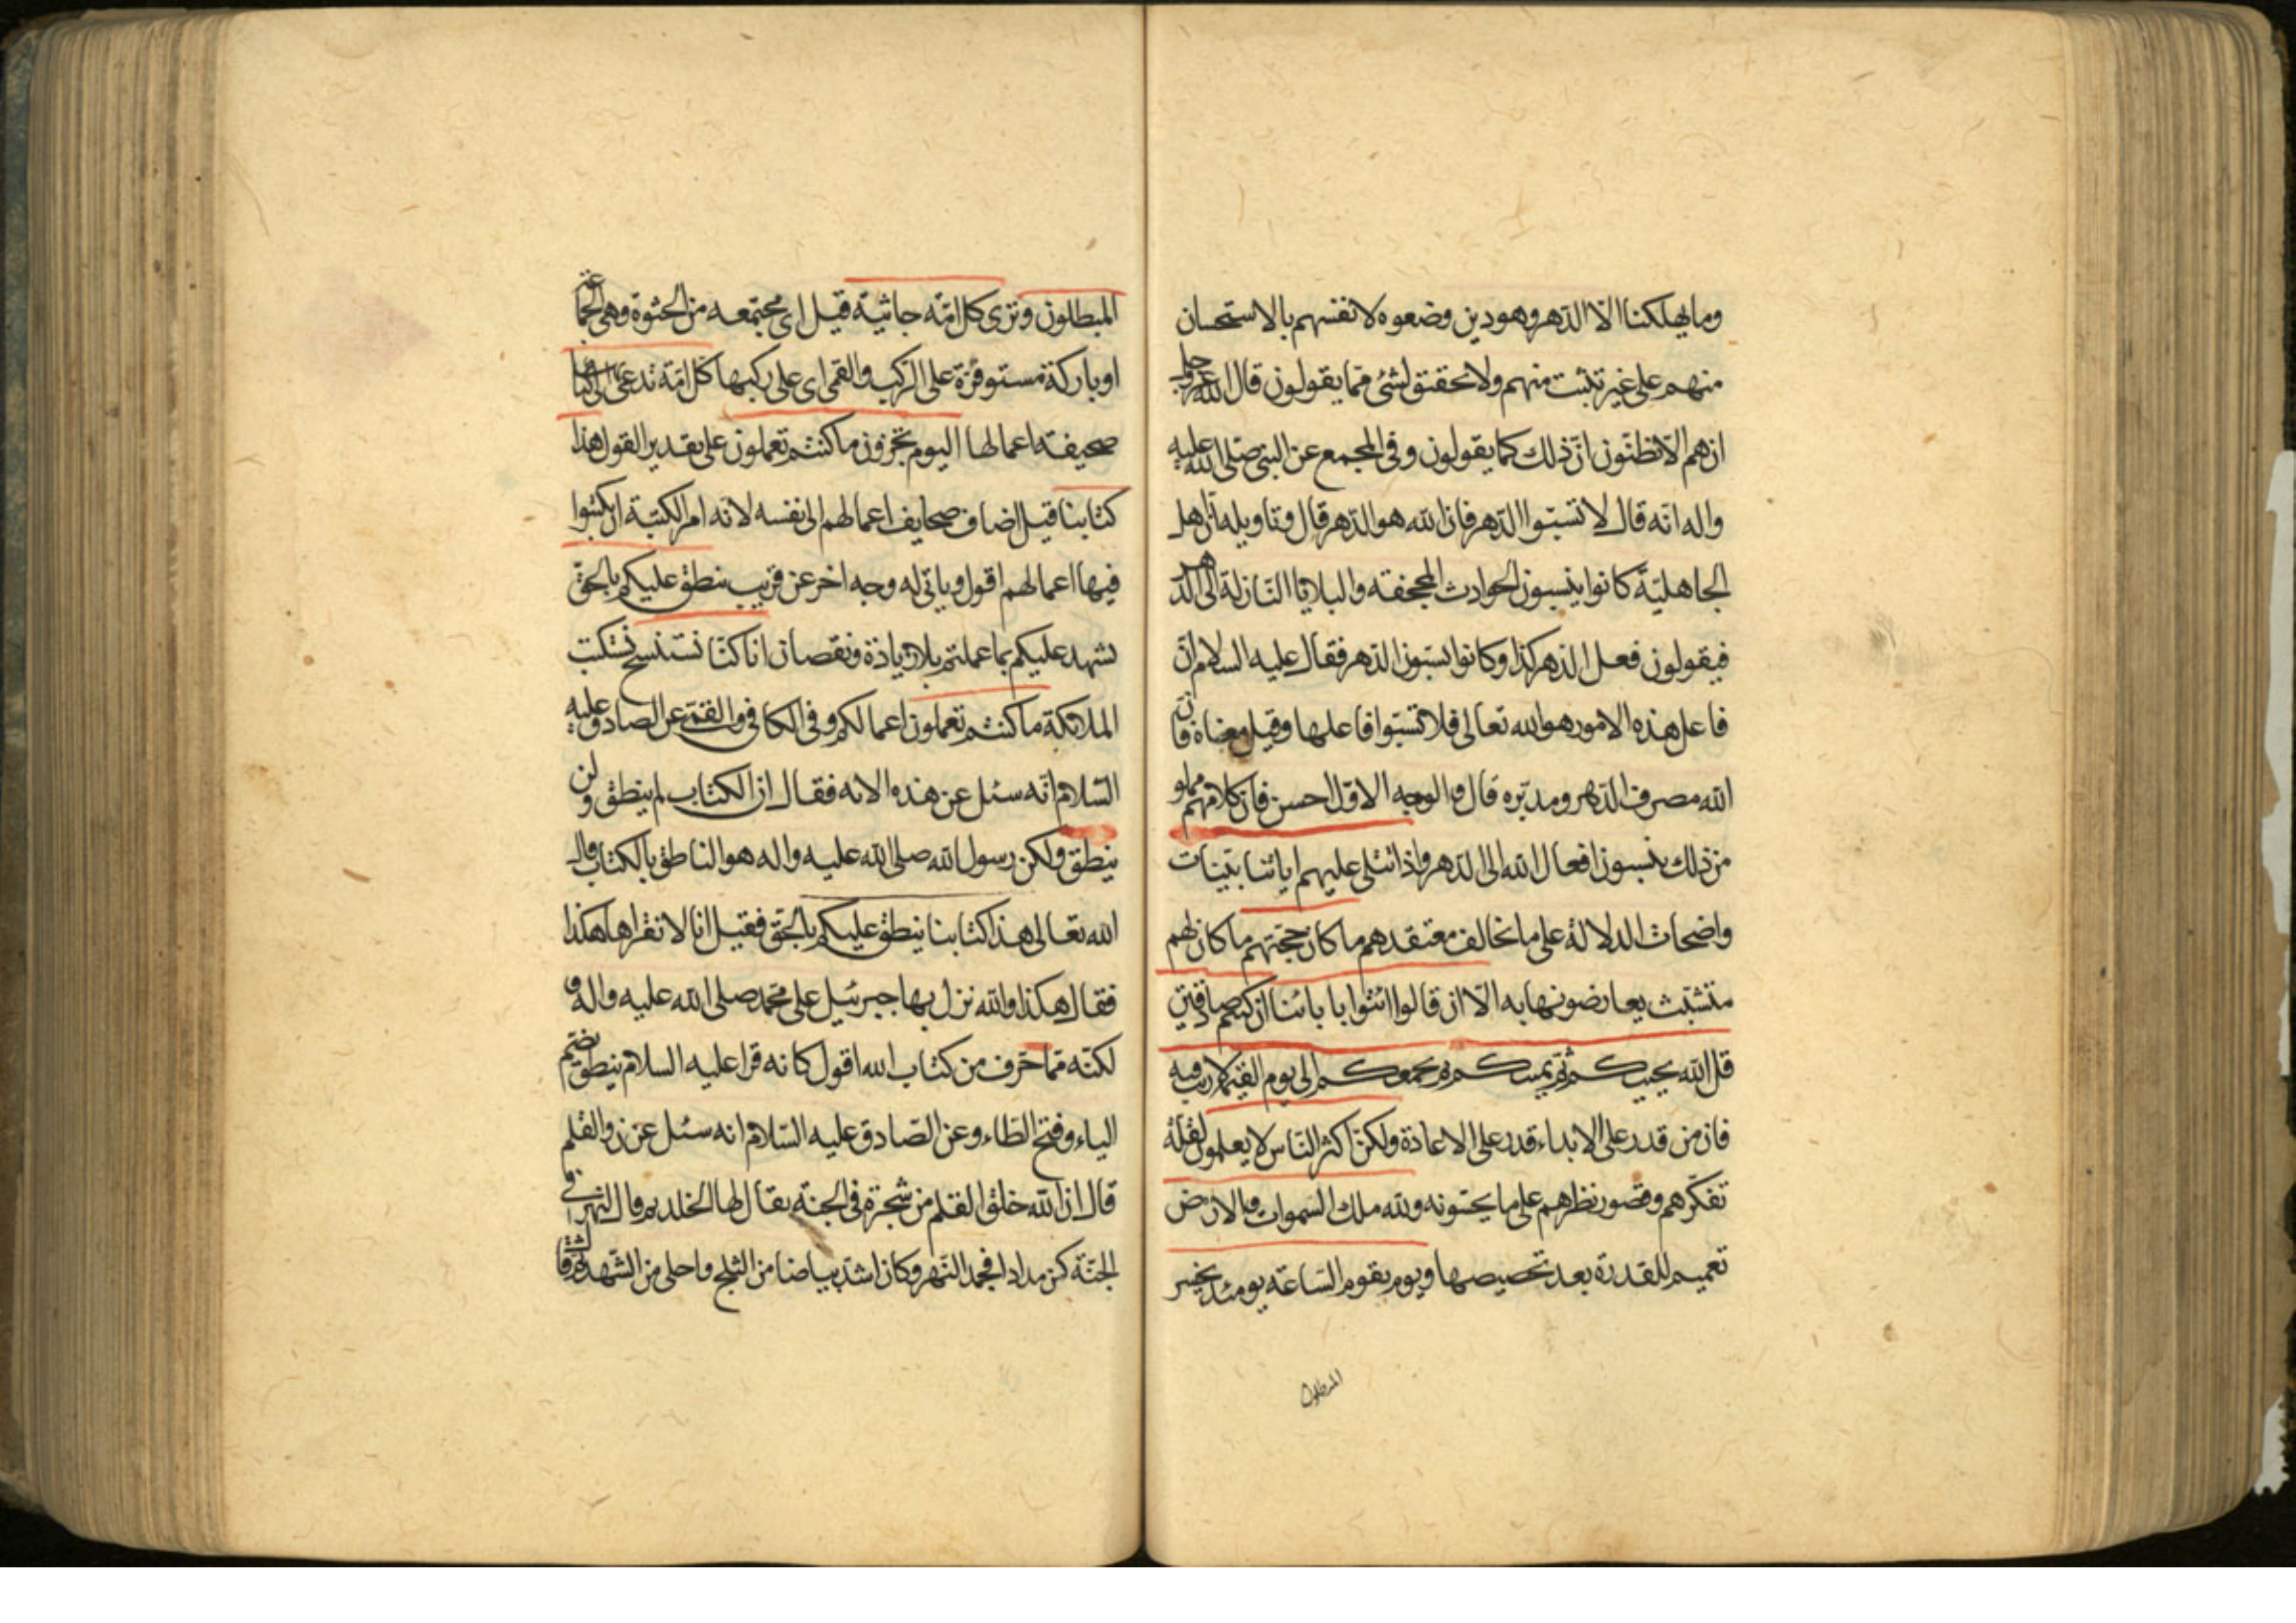 وما يهلكنا الا الدهر وهو دين وضعوه لانفسهم بالاستحسان
منهم على غير تثبت منهم ولا تحقيق لشئ مما يقولون قال الله عز وجل
ان هم الا يظنون ان ذلك كما يقولون وفي المجمع عن النبي صلى الله عليه
واله انه قال لا تسبوا الدهر فان الله هو الدهر قال وتاويله ان اهل
الجاهلية كانوا ينسبون الحوادث المجحفة والبلايا النازلة الى الدهر
فيقولون فعل الدهر كذا وكانوا يسبون الدهر فقال عليه السلام ان
فاعل هذه الامور هو الله تعالى فلا تسبوا فاعلها وقيل معناه فان
الله مصرف الدهر ومدبره قال والوجه الاول احسن فان كلامهم مملو
من ذلك ينسبون افعال الله الى الدهر واذا تتلى عليهم اياتنا بينات
واضحات الدلالة على ما تخالف معتقدهم ما كان حجتهم ما كان لهم
متشبث يعارضونها به الا ان قالوا ائتوا بابائنا ان كنتم صادقين
قل الله يحييكم ثم يميتكم ثم يجمعكم الى يوم القيمة لا ريب فيه
فان من قدر على الابداء قدر على الاعادة ولكن اكثر الناس لا يعلمون لقلة
تفكرهم وقصور نظرهم على ما يحسونه ولله ملك السموات والارض
تعميم للقدرة بعد تخصيصها ويوم تقوم الساعة يومئذ يخسر
المبطلون
المبطلون وترى كل امة جاثية قيل اى مجتمعه من الجثوة وهى الجماعة
او باركة مستوفزة على الركب والقمى اى على ركبها كل امة تدعى الى كتابها
صحيفة اعمالها اليوم تجزون ما كنتم تعملون على تقدير القول هذا
كتابنا قيل اضاف صحايف اعمالهم الى نفسه لانه امر الكتبة ان يكتبوا
فيها اعمالهم اقول وياتى له وجه اخر عن قريب ينطق عليكم بالحق
يشهد عليكم بما عملتم بلا زيادة ونقصان انا كنا نستنسخ نستكتب
الملائكة ما كنتم تعملون اعمالكم وفى الكافى والقمى عن الصادق عليه
السلام انه سئل عن هذه الاية فقال ان الكتاب لم ينطق ولن
ينطق ولكن رسول الله صلى الله عليه واله هو الناطق بالكتاب قال
الله تعالى هذا كتابنا ينطق عليكم بالحق فقيل انا لا نقراها هكذا
فقال هكذا والله نزل بها جبرئيل على محمد صلى الله عليه واله و
لكنه مما حرف من كتاب الله اقول كانه قرا عليه السلام ينطق بضم
الياء وفتح الطاء وعن الصادق عليه السلام انه سئل عن ن والقلم
قال ان الله خلق القلم من شجرة فى الجنة يقال لها الخلد ثم قال لنهر فى
الجنة كن مدادا فجمد النهر وكان اشد بياضا من الثلج واحلى من الشهد ثم قال